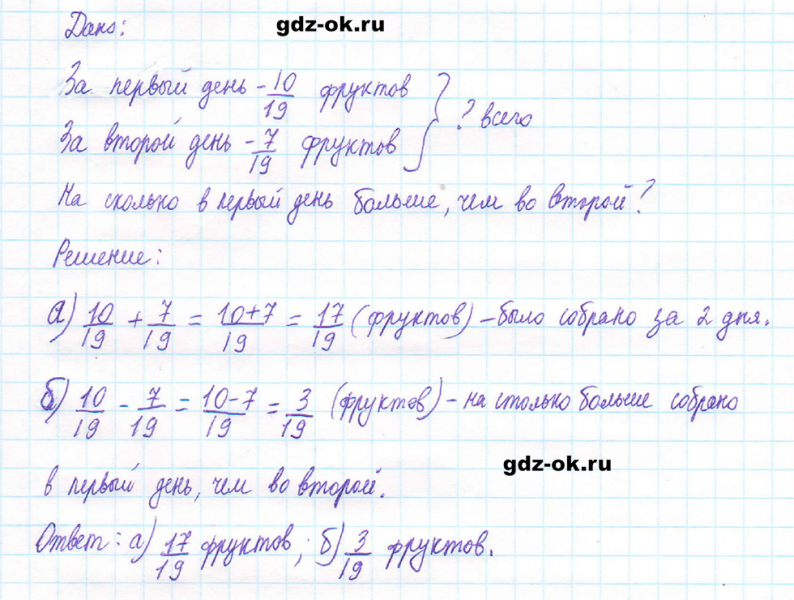 gdz-ok.ru
Дано:
За первый день - 10/19 фруктов
За второй день - 7/19 фруктов } ? всего
На сколько в первый день больше, чем во второй?
Решение:
а) 10/19 + 7/19 = 10+7/19 = 17/19 (фруктов) - было собрано за 2 дня.
б) 10/19 - 7/19 = 10-7/19 = 3/19 (фруктов) - на столько больше собрано
gdz-ok.ru
в первый день, чем во второй.
Ответ: а) 17/19 фруктов; б) 3/19 фруктов.